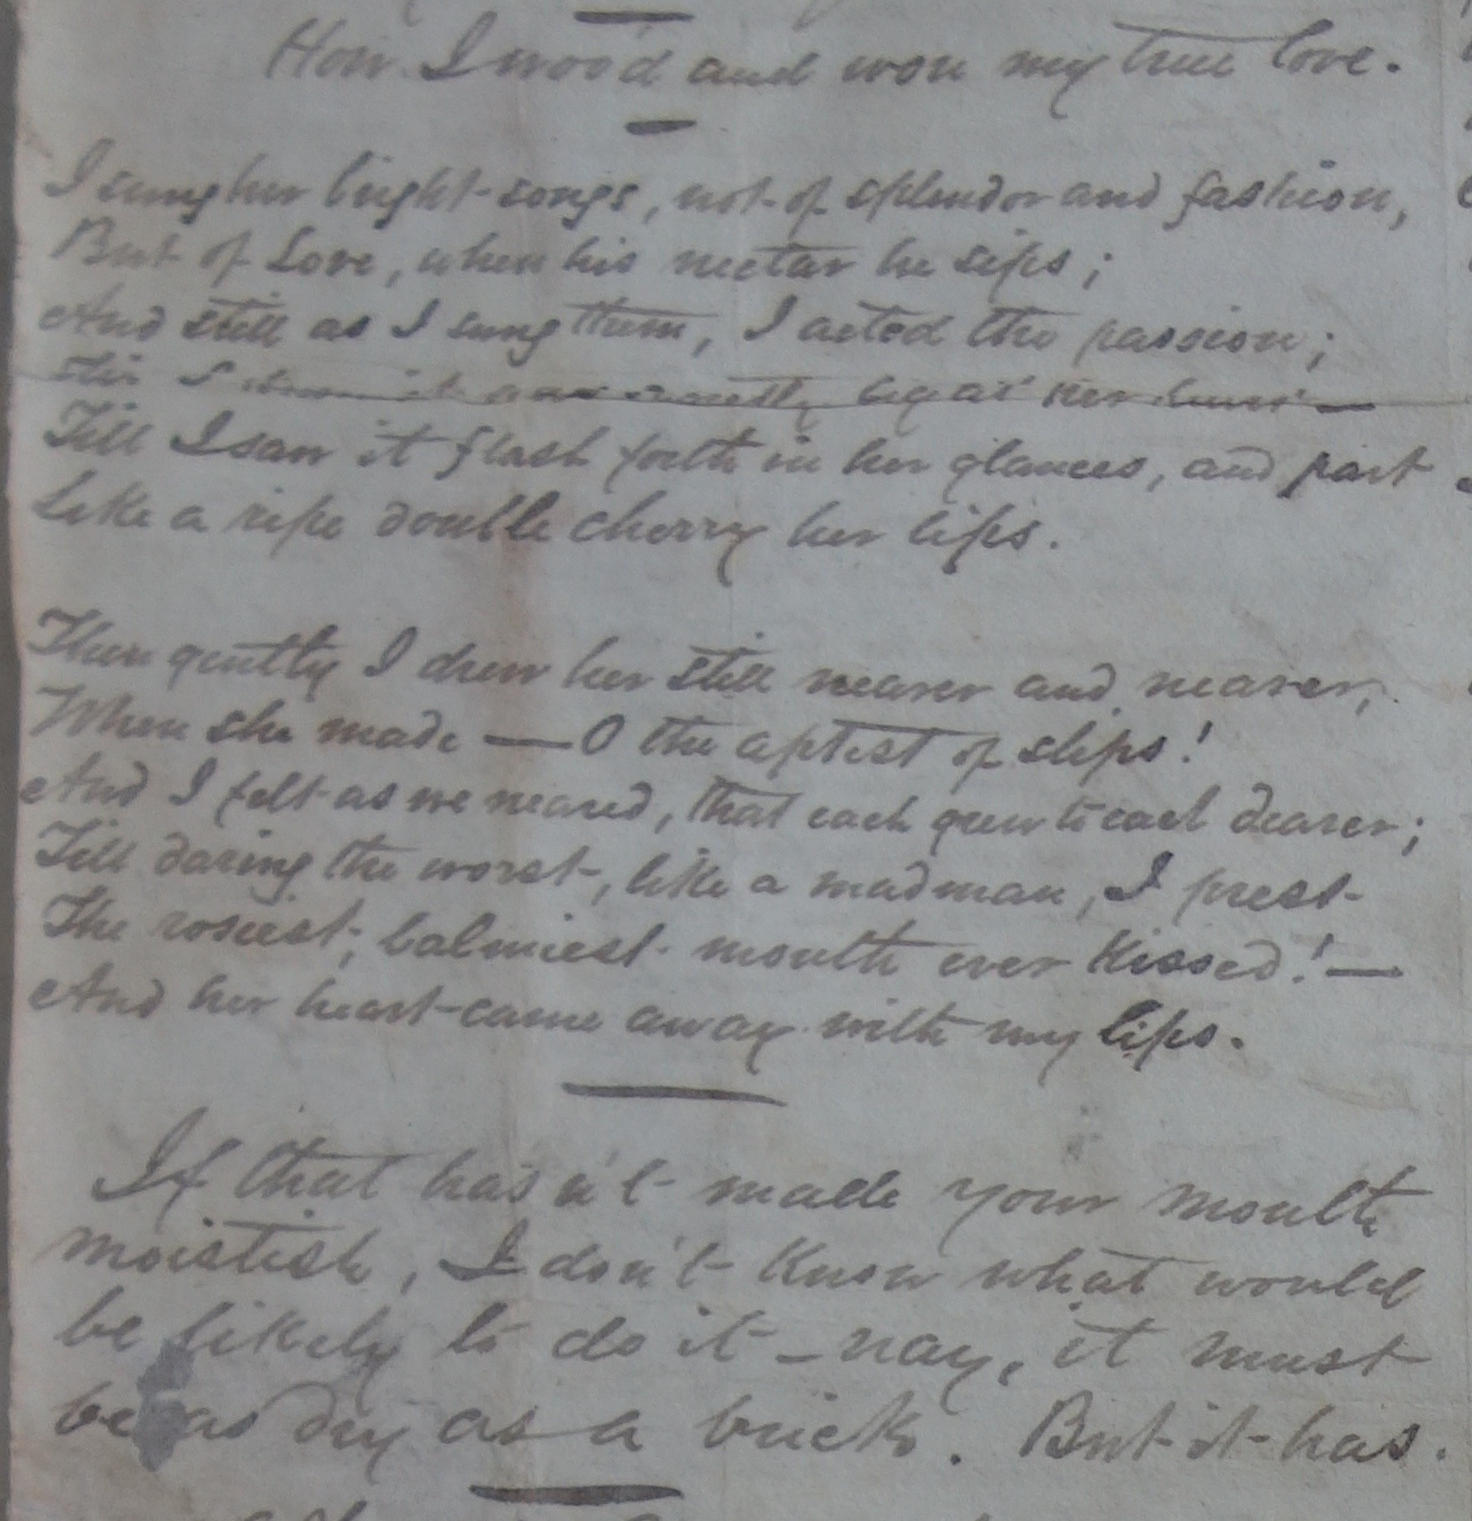 How I woo'd and won my true love.
I sung her bright songs, not of splendor and fashion,
But of Love, when his nectar he sips;
And still as I sung them, I acted the passion;
Till I saw it flash forth in her glances, and part
Like a ripe double cherry her lips.
Then gently I drew her still nearer and nearer,
When she made — O the aptest of slips!
And I felt as we neared, that each grew to each dearer;
Till daring the worst, like a madman, I prest
The rosiest, balmiest mouth ever kissed! —
And her heart came away with my lips.
If that has n't made your mouth
moistish, I don't know what would
be likely to do it – nay, it must
be as dry as a brick. But it has.